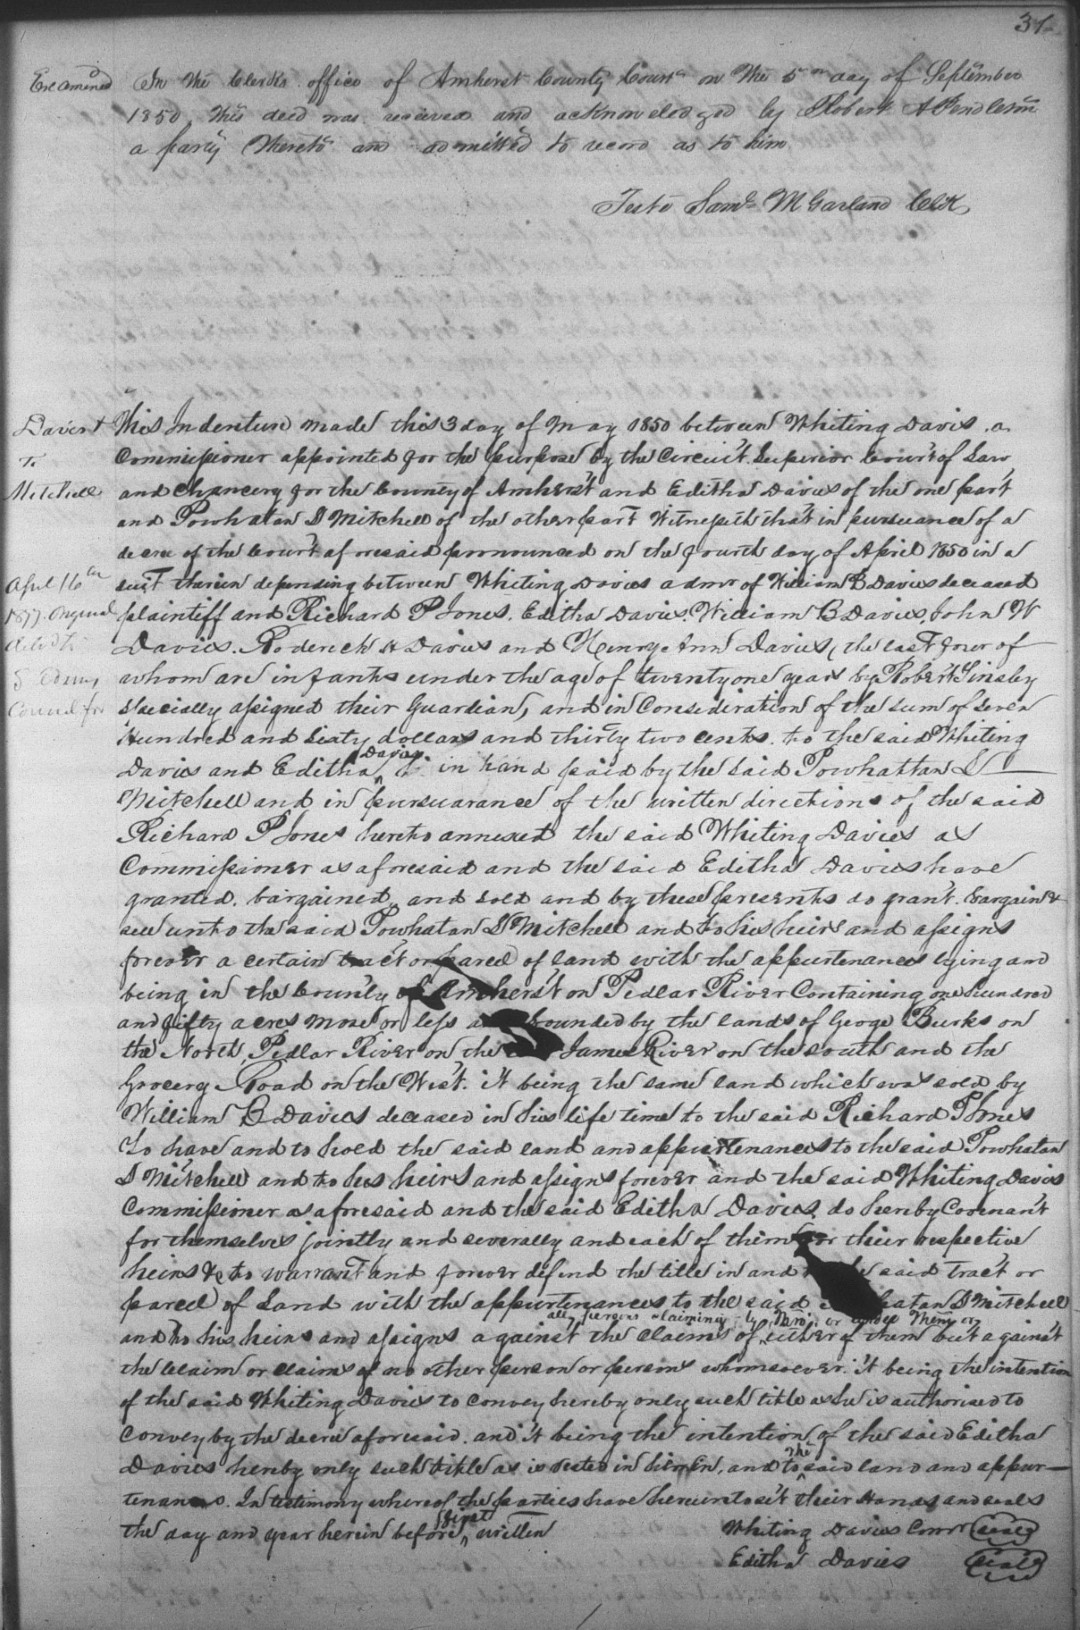 37
Examined In the Clerks office of Amherst County Court on the 5th day of September
1850, This deed was received and acknowledged by Robert A Pendleton
a party thereto and admitted to record as to him
Teste Saml M Garland Clk
Davies &
To
Mitchell
April 16th
1877. Original
This Indenture made this 3 day of May 1850 between Whiting Davies a
Commissioner appointed for the purpose by the Circuit Superior Court of Law
and Chancery for the County of Amherst and Editha Davies of the one part
and Powhatan S Mitchell of the other part Witnesseth that in pursuance of a
decree of the Court aforesaid pronounced on the fourth day of April 1850 in a
suit therein depending between Whiting Davies admr of William B Davies deceased
plaintiff and Richard P Jones. Editha Davies. William B Davies, John W
Davies. Roderick H Davies and Henry Ann Davies, (the last four of
whom are infants under the age of twenty one years by Robert Tinsley
specially assigned their Guardian, and in Consideration of the sum of Seven
Hundred and Sixty dollars and thirty two cents. to the said Whiting
Davies and Editha Davies in hand paid by the said Powhattan S
Mitchell and in pursuarance of the written directions of the said
Richard P Jones hereto annexed the said Whiting Davies as
Commissioner as aforesaid and the said Editha Davies have
granted. bargained, and sold and by these presents do grant. bargain &
sell unto the said Powhatan S Mitchell and to his heirs and assigns
forever a certain tract or parcel of land with the appurtenances lying and
being in the County of Amherst on Pedlar River Containing one hundred
and fifty acres more or less bounded by the lands of George Burks on
the North, Pedlar River on the James River on the south and the
Grocery Road on the West. it being the same land which was sold by
William B Davies deceased in his life time to the said Richard P Jones
To have and to hold the said land and appurtenances to the said Powhatan
S Mitchell and to his heirs and assigns forever and the said Whiting Davies
Commissioner as aforesaid and the said Editha Davies, do hereby Covenant
for themselves jointly and severally and each of them for their respective
heirs &c to warrant and forever defend the title in and said tract or
parcel of Land with the appurtenances to the said S Mitchell
and to his heirs and assigns against the claims of all persons claiming by thro, or under them or either of them but against
the claim or claims of no other person or persons whomsoever. it being the intention
of the said Whiting Davies to convey hereby only such title as he is authorised to
convey by the decree aforesaid. and it being the intention of the said Editha
Davies hereby only such title as is vested in her in, and to the said land and appur-
tenances. In testimony whereof the parties have hereunto set their Hands and seals
the day and year herein before first written
Whiting Davies Comr (seal)
Editha Davies (seal)